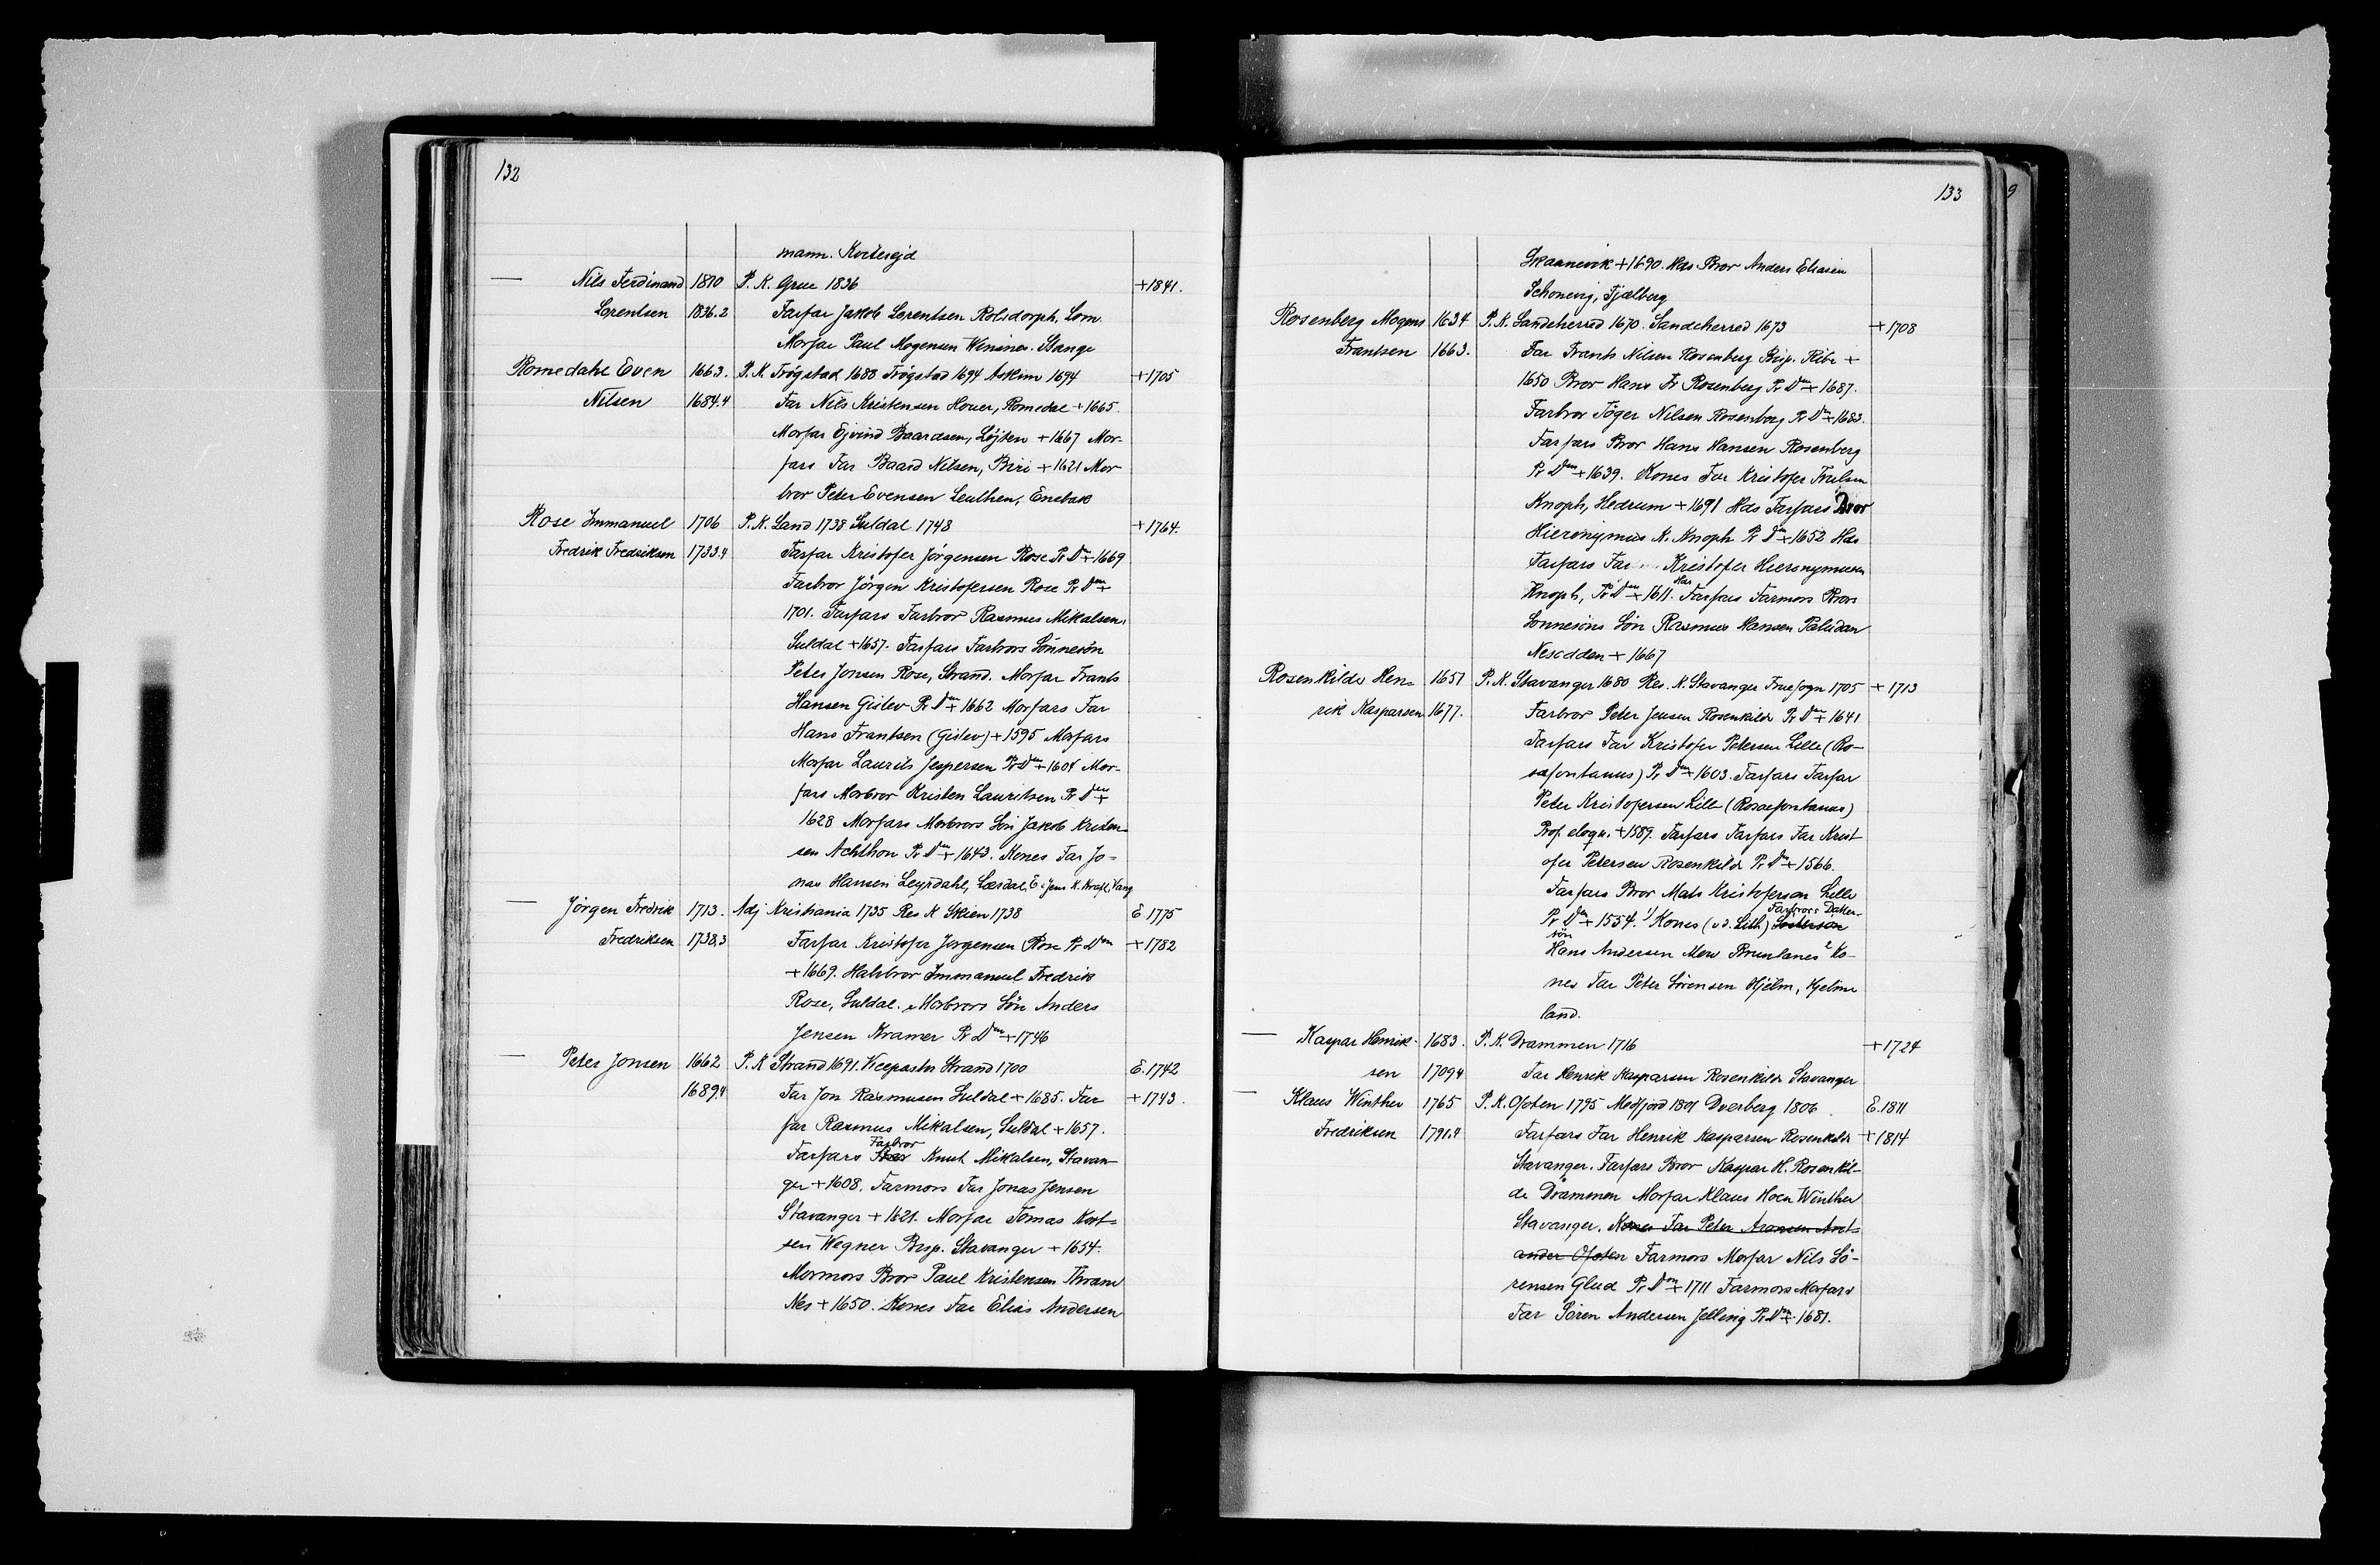 132
mann. Kviteseid
— Nils Ferdinand 1810 P. K. Grue 1836 +1841.
Lorentsen 1836.2 Farfar Jakob Lorentsen Rolsdorph, Lom.
Morfar Paul Mogensen Winsnes. Stange
Romedahl Even 1663. P. K. Trøgstad 1688 Trøgstad 1694 Askim 1694 +1705
Nilsen 1684.4 Far Nils Kristensen Houer, Romedal +1665.
Morfar Ejvind Baardsen, Løjten +1667 Mor-
fars Far Baard Nilsen, Biri +1621 Mor
bror Peter Evensen Leuthen, Enebak
Rose Immanuel 1706 P. K. Land 1738 Suldal 1748 +1764.
Fredrik Fredriksen 1733.4 Farfar Kristofer Jørgensen Rose Pr Dm +1669
Farbror Jörgen Kristofersen Rose Pr Dm +
1701. Farfars Farbror Rasmus Mikalsen,
Suldal +1657. Farfars Farbrors Sönnesön
Peter Jonsen Rose, Strand. Morfar Frants
Hansen Gislev Pr Dm + 1662 Morfars Far
Hans Frantsen (Gislev) +1595 Morfars
Morfar Laurits Jespersen Pr Dm + 1604 Mor-
fars Morbror Kristen Lauritsen Pr Dm +
1628 Morfars Morbrors Sön Jakob Kristen-
sen Achthon Pr Dm + 1643. Kones Far Jo-
nas Hansen Leyrdahl, Lærdal, E. Jens K. Kraft, Vang
— Jörgen Fredrik 1713. Adj Kristiania 1735 Res K Skien 1738 E 1775
Fredriksen 1738.3 Farfar Kristofer Jørgensen Rose Pr Dm +1782
+1669. Halvbror Immanuel Fredrik
Rose, Suldal. Morbrors Sön Anders
Jensen Kramer Pr Dm +1746
— Peter Jonsen 1662 P. K Strand 1691. Vicepastor Strand 1700 E. 1742
1689.4 Far Jon Rasmusen Suldal + 1685. Far +1743.
far Rasmus Mikalsen, Suldal +1657.
Farbror
Farfars Knut Mikalsen, Stavan-
ger +1608. Farmors Far Jonas Jensen
Stavanger +1621. Morfar Tomas Kort-
sen Wegner Bisp. Stavanger +1654.
Mormors Bror Paul Kristensen Thrane
Nes +1650. Kones Far Elias Andersen
133
Skaanevik +1690. Hds Bror Anders Eliasen
Schonevig, Fjælberg
Rosenberg Mogens 1634 P. K. Sandeherred 1670. Sandeherred 1673 +1708
Frantsen 1663. Far Frants Nilsen Rosenberg Bisp. Ribe +
1650 Bror Hans Fr Rosenberg Pr Dm + 1687.
Farbror Töger Nilsen Rosenberg Pr Dm +1683.
Farfars Bror Hans Hansen Rosenberg
Pr Dm +1639. Kones Far Kristofer Trulsen
Knoph, Hedrum +1691 Hds Farfars Bror
Hieronymus K. Knoph Pr Dm +1652 Hds
Farfars Far Kristofer Hieronymusen
Hds
Knoph, Pr Dm +1611. Farfars Farmors Brors
Sönnesöns Sön Rasmus Hansen Paludan
Nesodden +1667
Rosenkilde Hen- 1651 P. K. Stavanger 1680 Res. K. Stavanger Fruesogn 1705 +1713
rik Kasparsen 1677. Farbror Peter Jensen Rosenkilde Pr Dm +1641
Farfars Far Kristofer Petersen Lille (Ro-
safontanus) Pr Dm +1603. Farfars Farfar
Peter Kristofersen Lille (Rosaefontanus)
Prof. eloqu. +1589. Farfars Farfars Far Krist
ofer Petersen Rosenkilde Pr Dm +1566.
Farfars Bror Mats Kristofersen Lille
Farbrors Datter-
Pr Dm +1554. 1) Kones (v.d. Lith) Søstersøn
sön
Hans Andersen Meu Brunlanes 2 Ko-
nes Far Peter Sörensen Hjelm, Hjelme
land.
— Kaspar Henrik- 1683. P. K. Drammen 1716 +1724
sen 1709.4 Far Henrik Kasparsen Rosenkilde Stavanger
— Klaus Winther 1765 P. K. Ofoten 1795 Medfjord 1801 Dverberg 1806. E. 1811
Fredriksen 1791.4 Farfars Far Henrik Kasparsen Rosenkilde +1814
Stavanger. Farfars Bror Kaspar H. Rosenkil-
de Drammen Morfar Klaus Hoen Winther
Stavanger. Kones Far Peter Aronsen Arct-
ander Ofoten Farmors Morfar Nils Sö-
rensen Glud Pr Dm +1711 Farmors Morfars
Far Sören Andersen Jelling Pr Dm +1681.
9